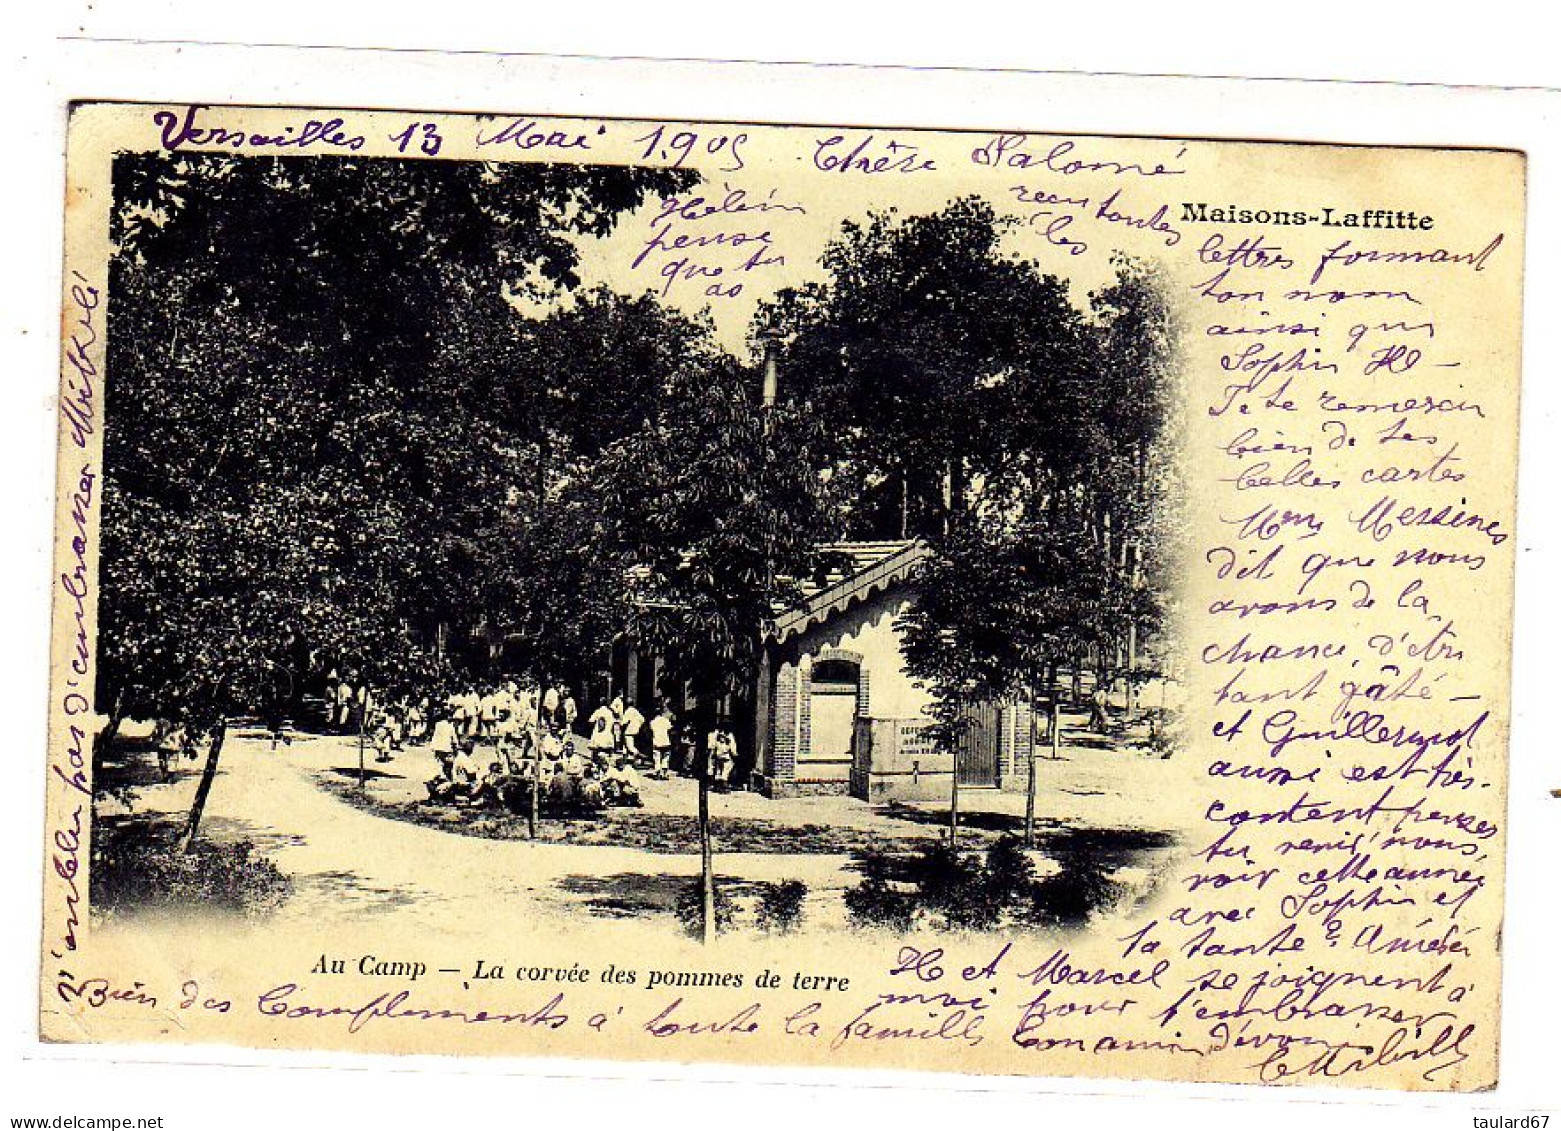 Versailles 13 Mai 1905 Chère Salomé
Hélèn
pense
que tu
as
recu toutes
les
Maisons-Laffitte
lettres formant
ton nom
ainsi que
Sophie H –
Je te remercie
bien de tes
belles cartes
Mme Messine
dit que nous
avons de la
chance, d'être
tant gâté –
et Guillermot
aussi est très-
content penses
tu venir nous
voir cette année
avec Sophie et
ta tante?
H et Marcel se joignent à
moi pour t'embrasser
Ton amie dévouée
Au Camp — La corvée des pommes de terre
Bien des Compliments à toute la famille
n'oublie pas d'embrasser
delcampe.net
taulard67